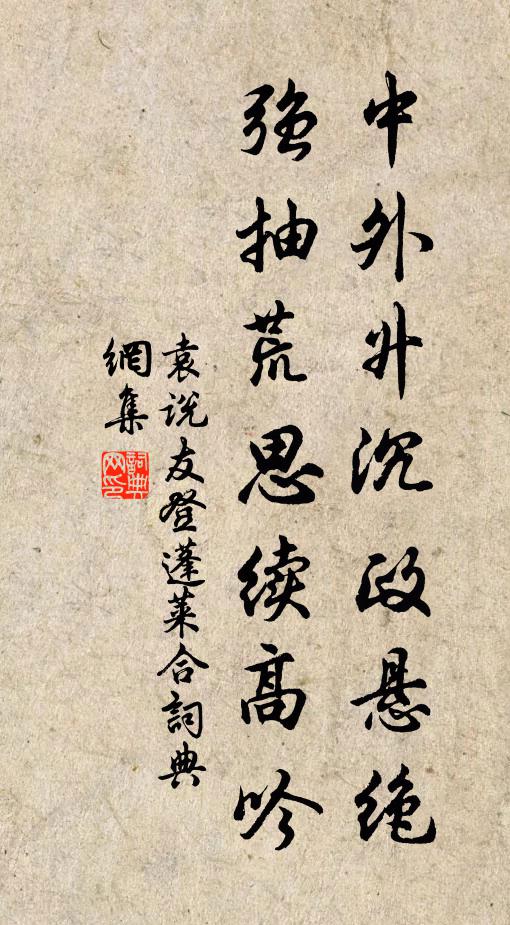 中外升沉政悬绝
强抽荒思续高吟
袁说友登蓬莱合詞典
網集
詞典網印